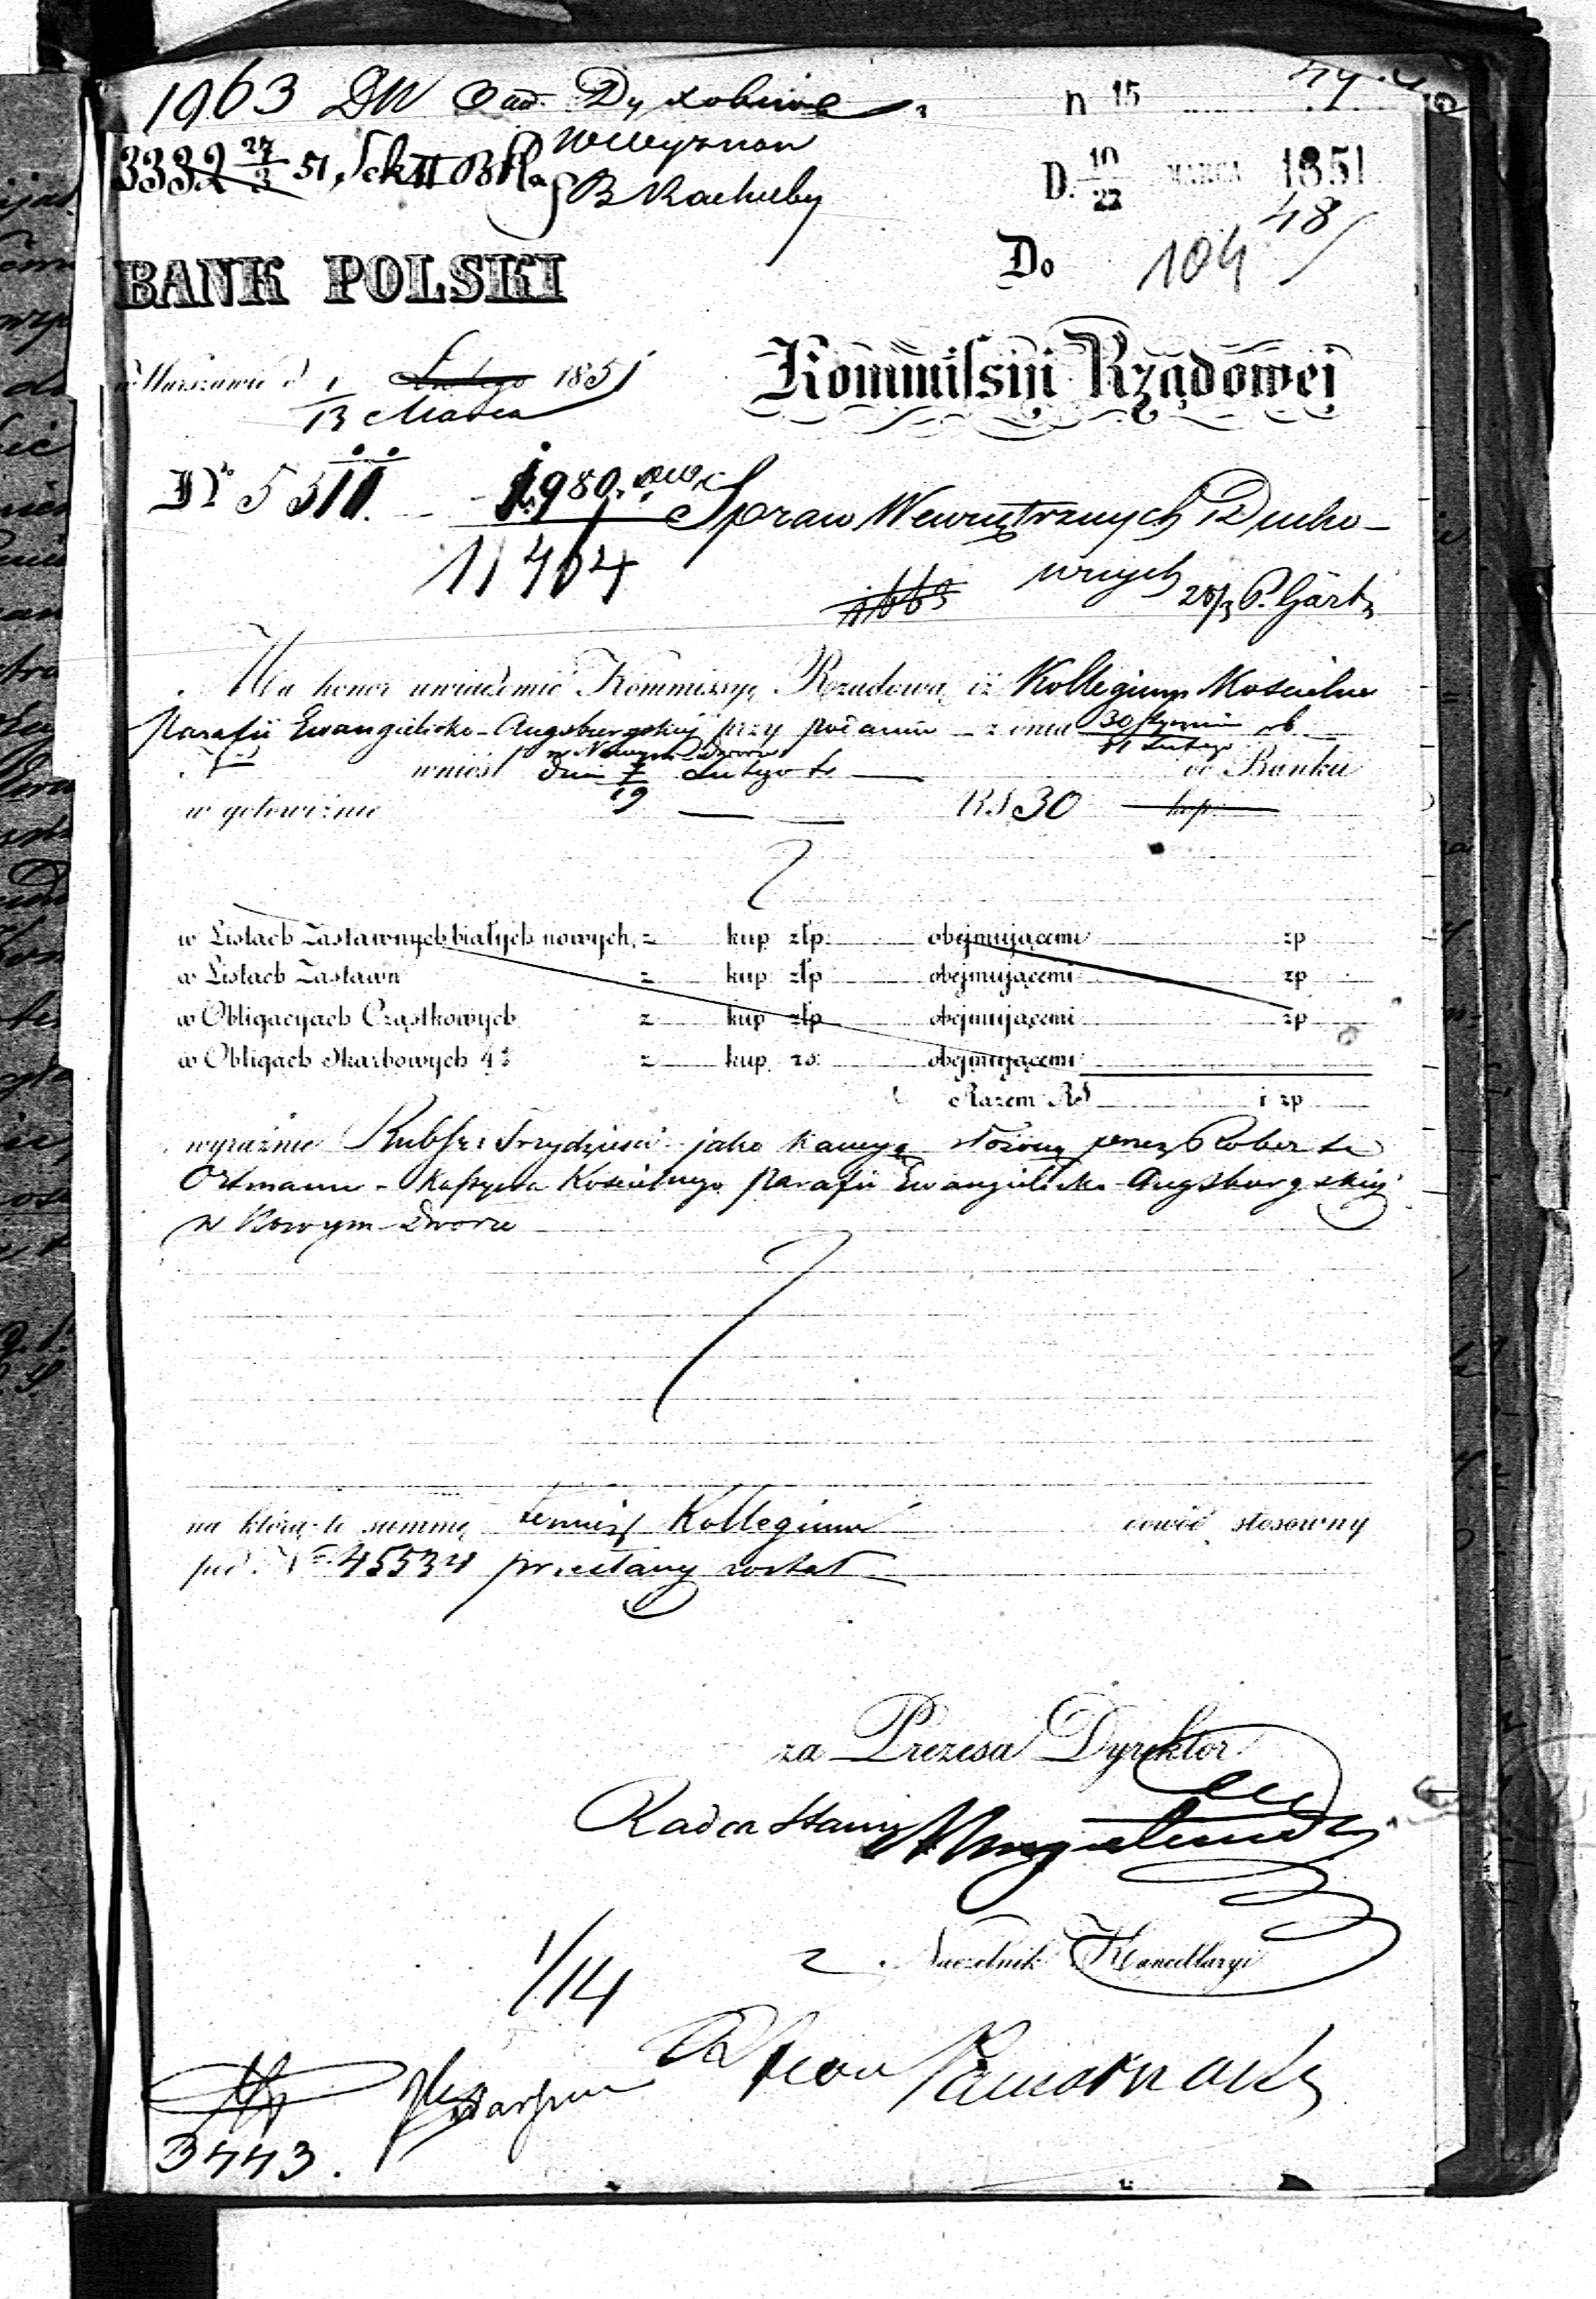 1963 DW
n 15
3332 27/3 51, Sek II
W Wyznań
B Rachuby
D. 10/22 MARCA 1851
48
BANK POLSKI
Do 104
w Warszawie d. 1/13 Lutego Marca 1851
Kommissyi Rządowej
No 5311. 1980.
11404
Spraw Wewnętrznych i Ducho-
wnych
1663 28/3 P. Gärtz
Ma honor uwiadomić Kommissyę Rządową iż Kollegium Kościelne
Parafii Ewangelicko-Augsburgskiej przy podaniu z dnia 30 Stycznia/11 Lutego rb
w Nowym Dworze
No wniosł dnia 7/19 Lutego tr do Banku
w gotowiźnie RS 30 kop.
w Listach Zastawnych białych nowych, z kup złp: obejmującemi zp
w Listach Zastawn z kup złp obejmującemi zp
w Obligacyach Cząstkowych z kup złp obejmującemi zp
w Obligach Skarbowych 4% z kup. zs: obejmującemi
Razem RS i zp
wyraźnie Rubsr: Trzydzieści jako kaucyę złożoną przez Roberta
Ortmann - Kassyera Kościelnego Parafii Ewangelicko-Augsburgskiej
w Nowym-Dworze
na którą-to summę temuż Kollegium dowód stosowny
pod No 45534 przesłany został
za Prezesa Dyrektor
Radca Stanu
z. Naczelnik Kancellaryi
1/14
3443.